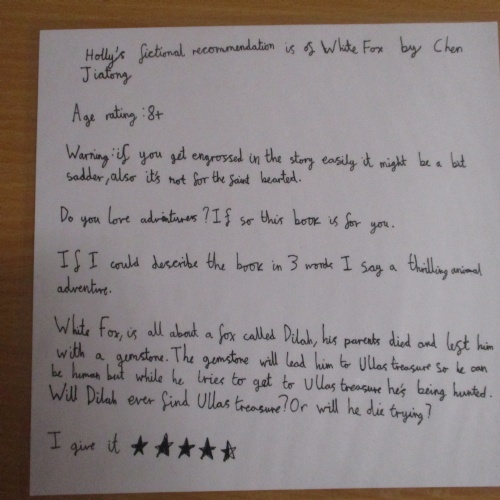 Holly's fictional recommendation is of White Fox by Chen
Jiatong
Age rating :8+
Warning: if you get engrossed in the story easily it might be a bit
sadder, also it's not for the faint hearted.
Do you love adventures? If so this book is for you.
If I could describe the book in 3 words I say a thrilling animal
adventure.
White Fox, is all about a fox called Dilah, his parents died and left him
with a gemstone. The gemstone will lead him to Ullas treasure so he can
be human but while he tries to get to Ullas treasure he's being hunted.
Will Dilah ever find Ullas treasure? Or will he die trying?
I give it ★★★★⯪